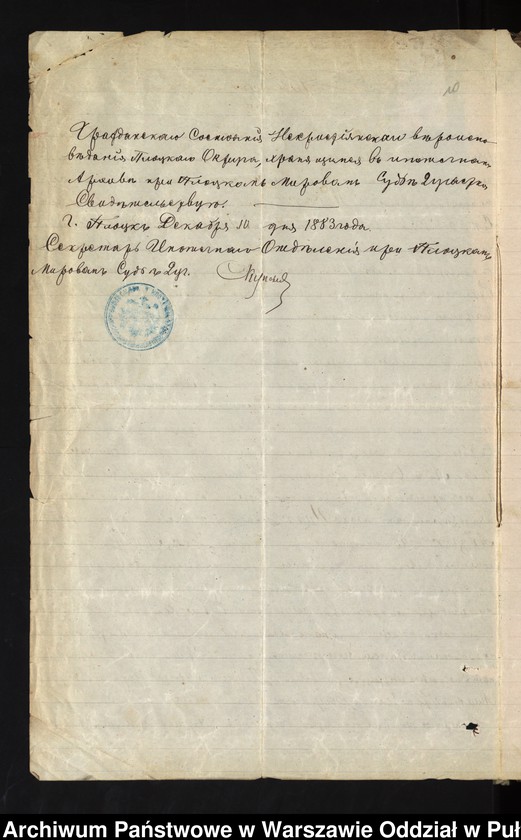 Гражданскаго Состоянія Нехристіянскаго вѣроиспо-
вѣданія Плоцкаго Округа, хранящимся во ипотечном
Архивѣ при Плоцкомъ Мировомъ Судѣ 2 участка
Свидѣтельствую.
Г. Плоцкъ Декабря 10 дня 1883 года.
Секретарь Ипотечнаго Отдѣленія при Плоцкомъ
Мировомъ Судѣ 2 уч.
10
Archiwum Państwowe w Warszawie Oddział w Puł